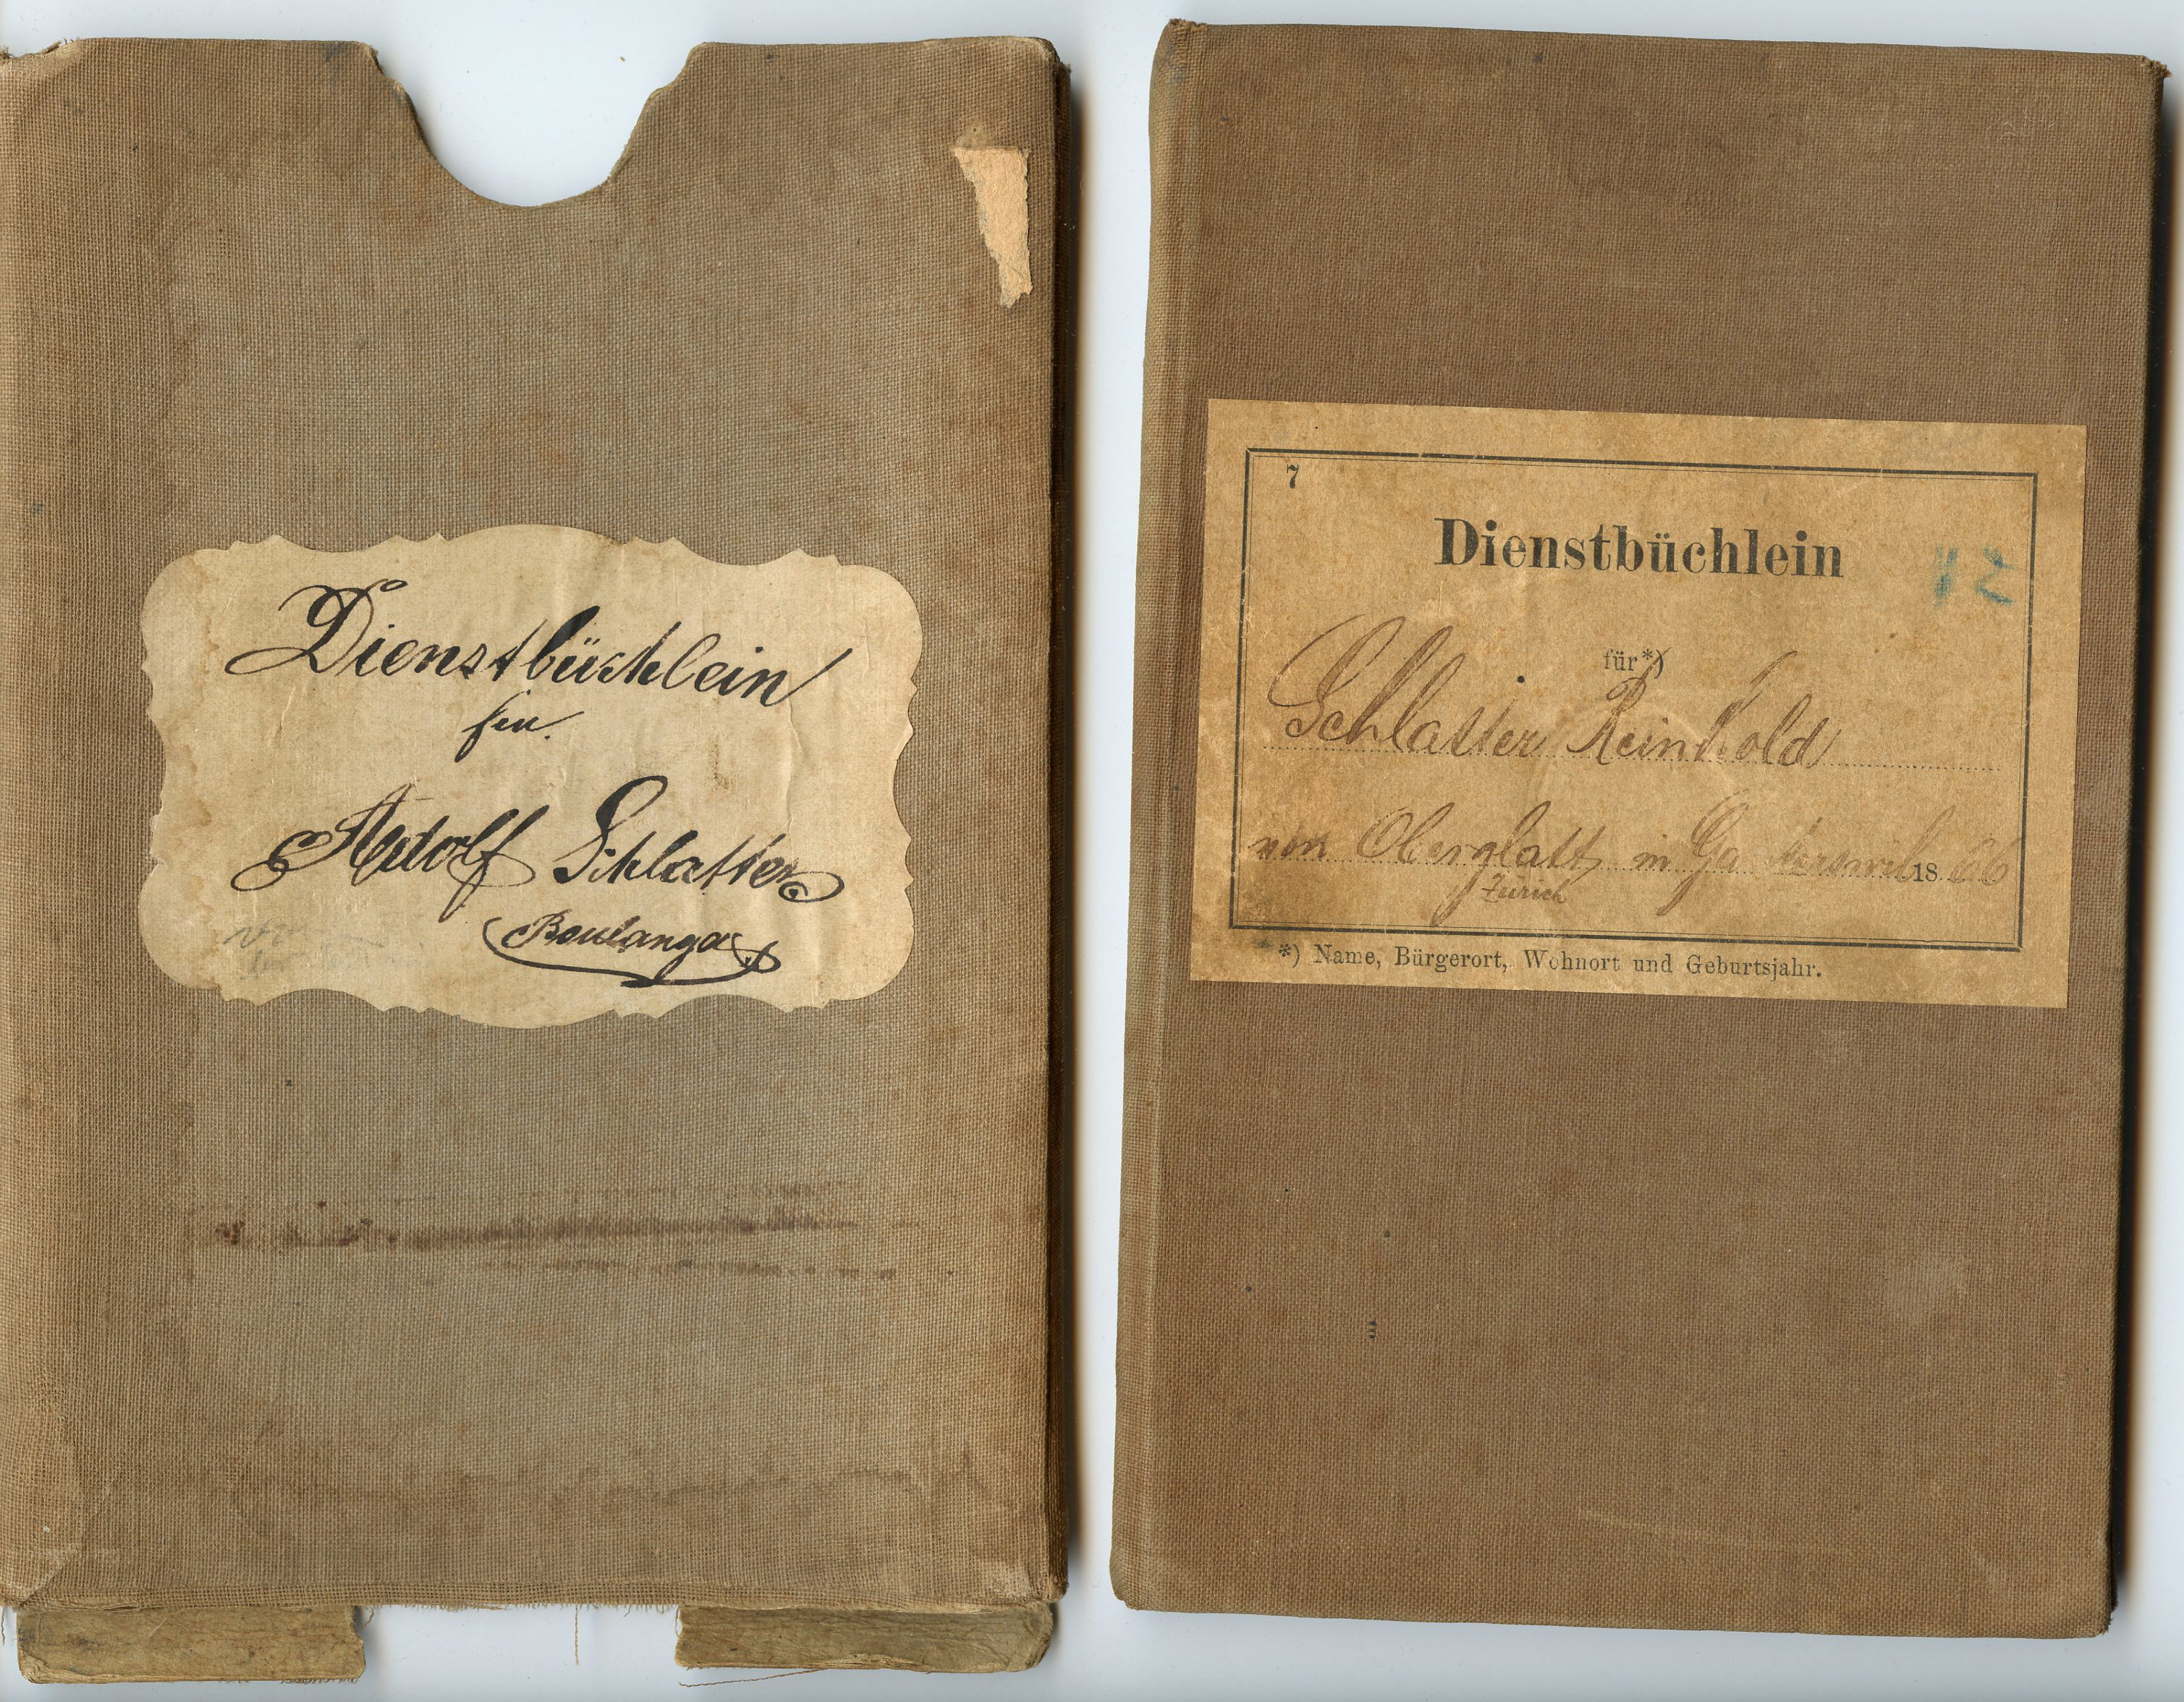 Dienstbüchlein
für
Adolf Schlatter
Boulanga
7
Dienstbüchlein
12
für*)
Schlatter Reinhold
von Oberglatt, in 1886
Zürich
*) Name, Bürgerort, Wohnort und Geburtsjahr.